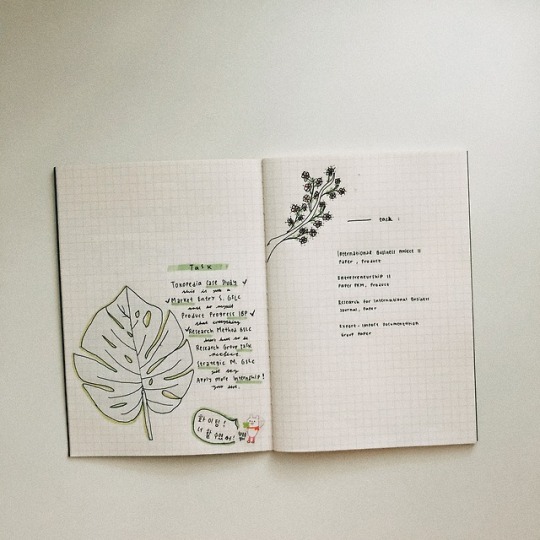 Task
Tokopedia Case Study ✓
this is not a
✓ Market Entry S. GSLC
Product Progress IBP ✓
✓ Research Method GSLC
Research Group Talk
Strategic M. GSLC
Apply more Internship!
화이팅!
너 할 수 있어!
task :
International Business Project II
Paper, Product
Entrepreneurship II
Paper FRM, Product
Research for International Business
Journal, Paper
Export-Import Documentation
Group Paper